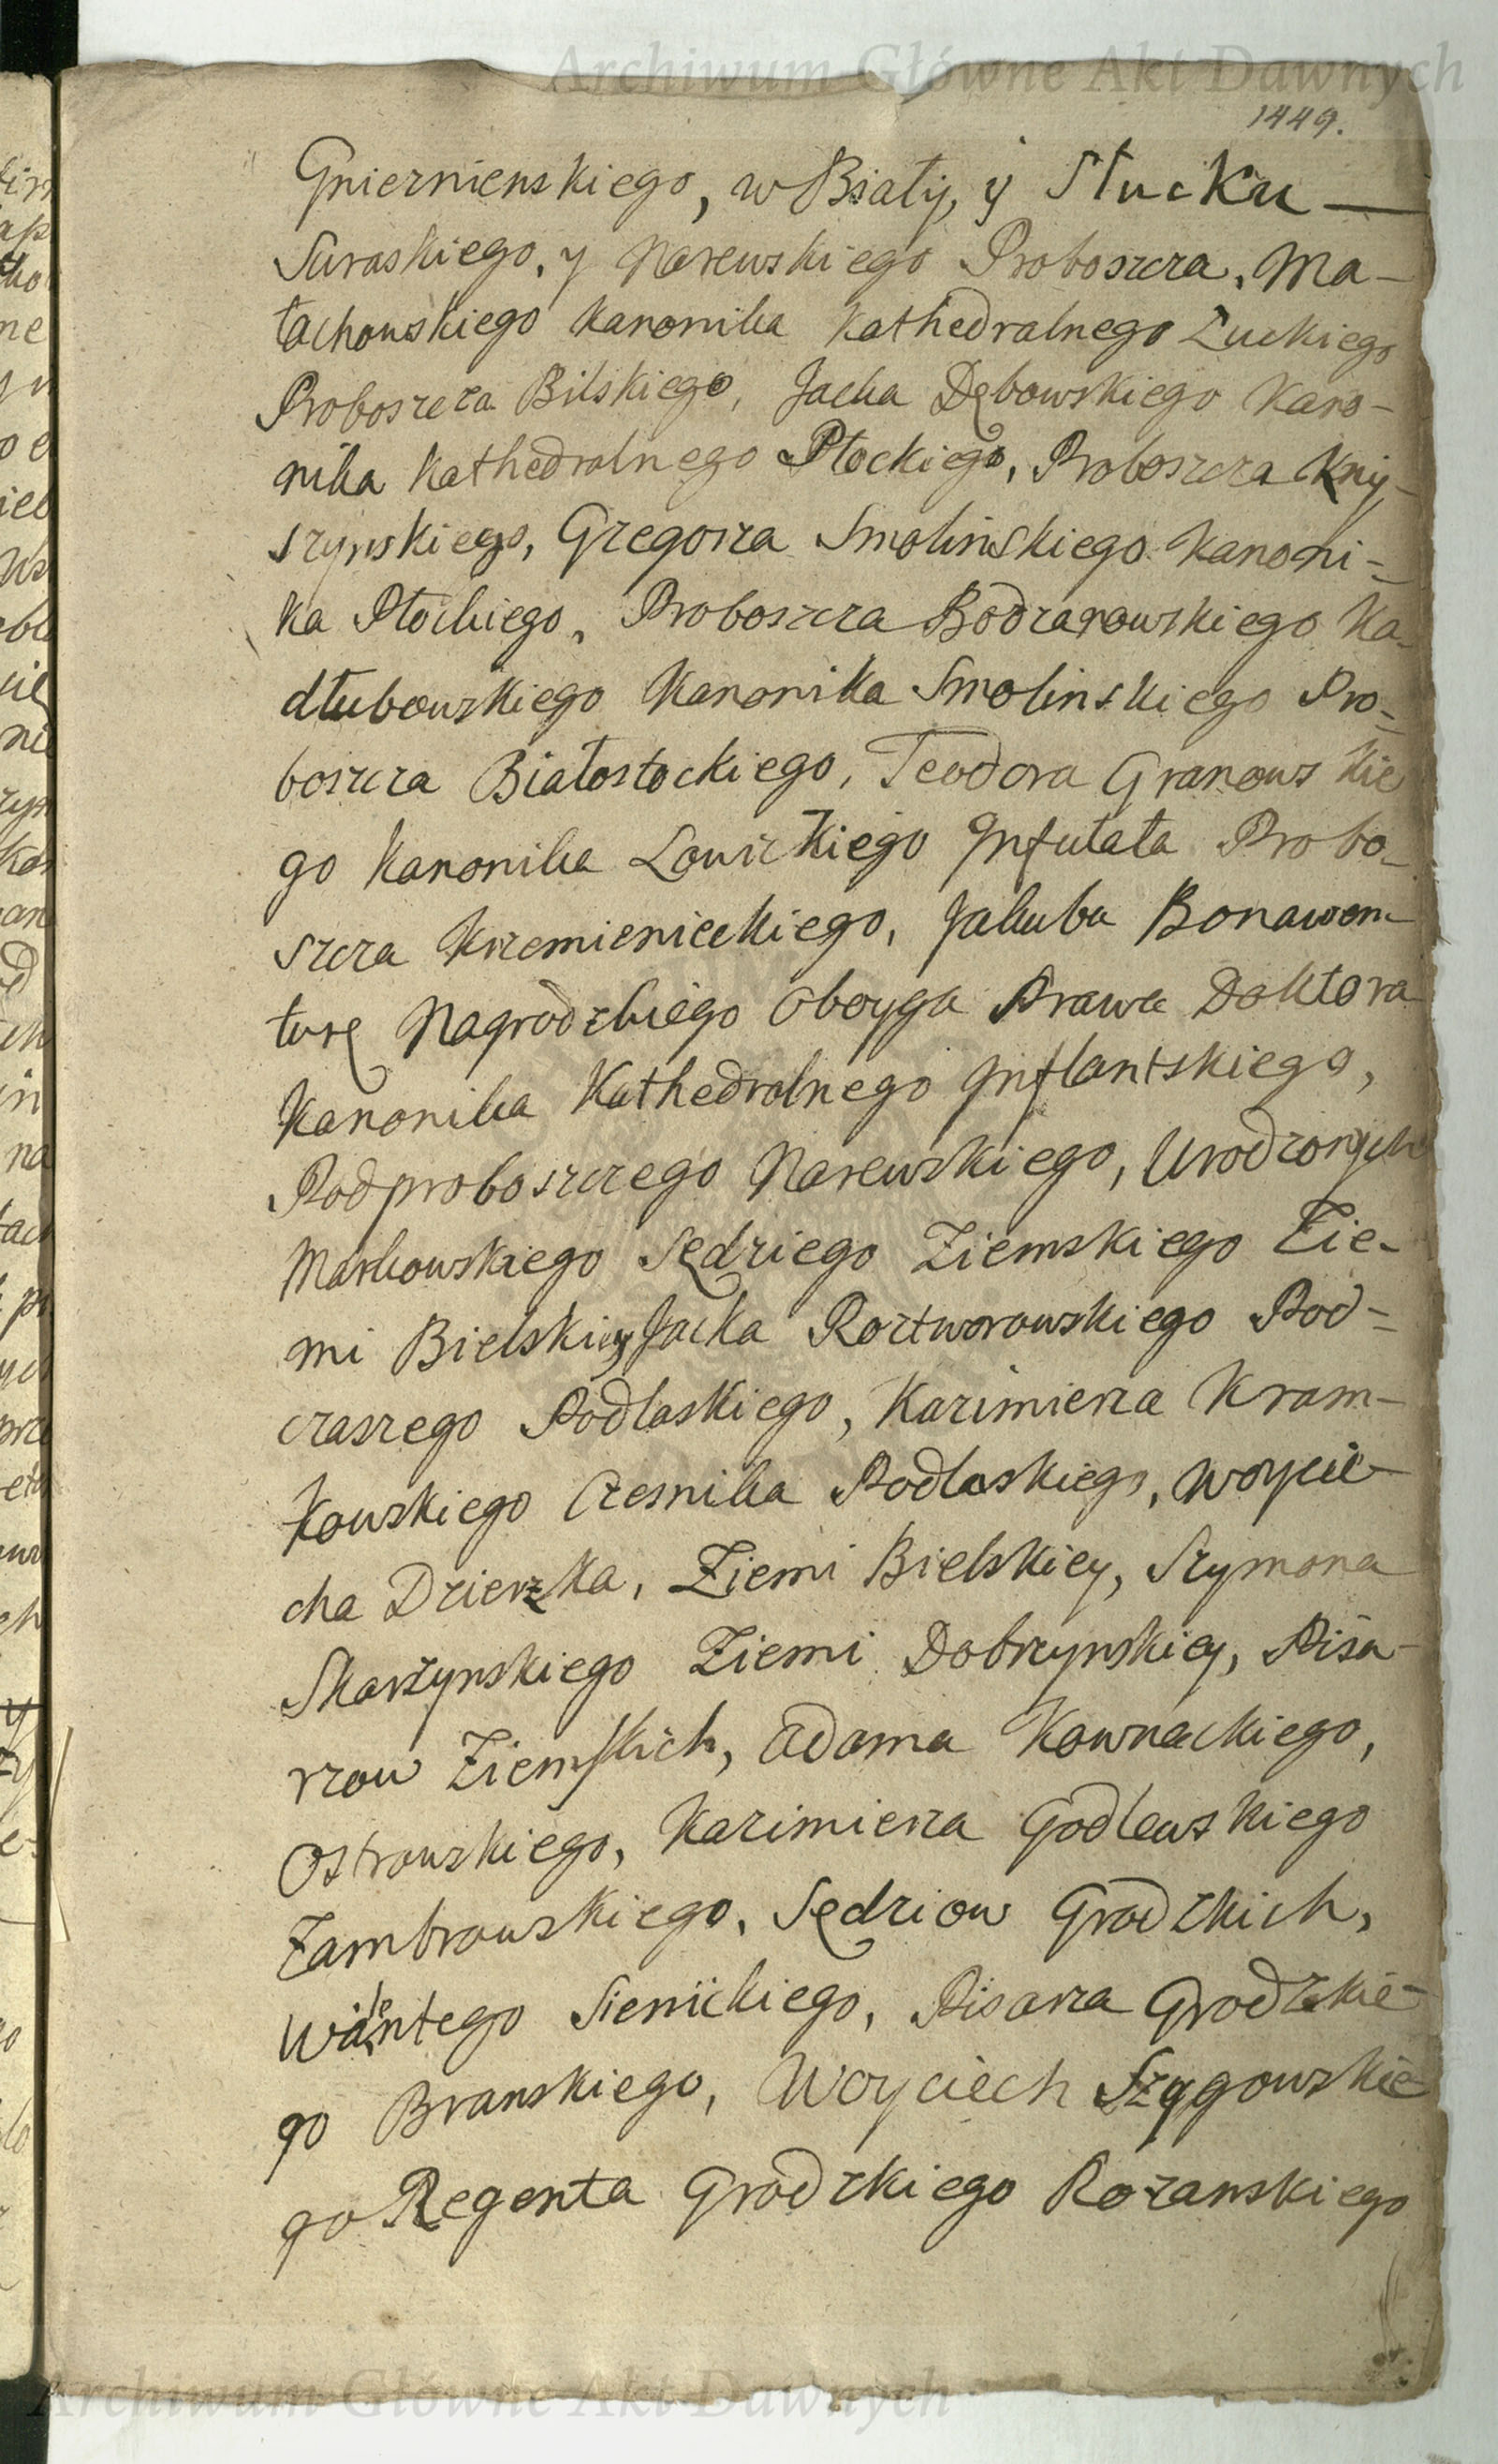 Archiwum Główne Akt Dawnych
1449.
Gniernienskiego, w Biały, y Słucku —
Suraskiego, y Narewskiego Proboszcza, Ma-
łachowskiego Kanonika Kathedralnego Łuckiego
Proboszcza Bilskiego, Jacka Dębowskiego Kano-
nika Kathedralnego Płockiego, Proboszcza Kny-
szynskiego, Gregorza Smolinskiego Kanoni-
ka Płockiego, Proboszcza Bodzanowskiego Ka-
dłubowskiego Kanonika Smolinskiego Pro-
boszcza Białostockiego, Teodora Granowskie
go Kanonika Lowickiego Infułata Probo-
szcza Krzemienieckiego, Jakuba Bonawen-
turę Nagrodzkiego Oboyga Prawa Doktora
Kanonika Kathedralnego Inflantskiego,
Podproboszczego Narewskiego, Urodzonych
Markowskiego Sędziego Ziemskiego Zie-
mi Bielskiey Jacka Roztworowskiego Pod-
czaszego Podlaskiego, Kazimierza Kram-
kowskiego Czesnika Podlaskiego, Woycie-
cha Dzierzka, Ziemi Bielskiey, Szymona
Skarzynskiego Ziemi Dobrzynskiey, Pisa-
rzow Ziemskich, Adama Kownackiego,
Ostrowskiego, Kazimierza Godlewskiego
Zambrowskiego, Sędziow Grodzkich,
Sienickiego, Pisarza Grodzkie-
go Branskiego, Woyciech Szygowskie
go Regenta Grodzkiego Rozanskiego
Archiwum Główne Akt Dawnych